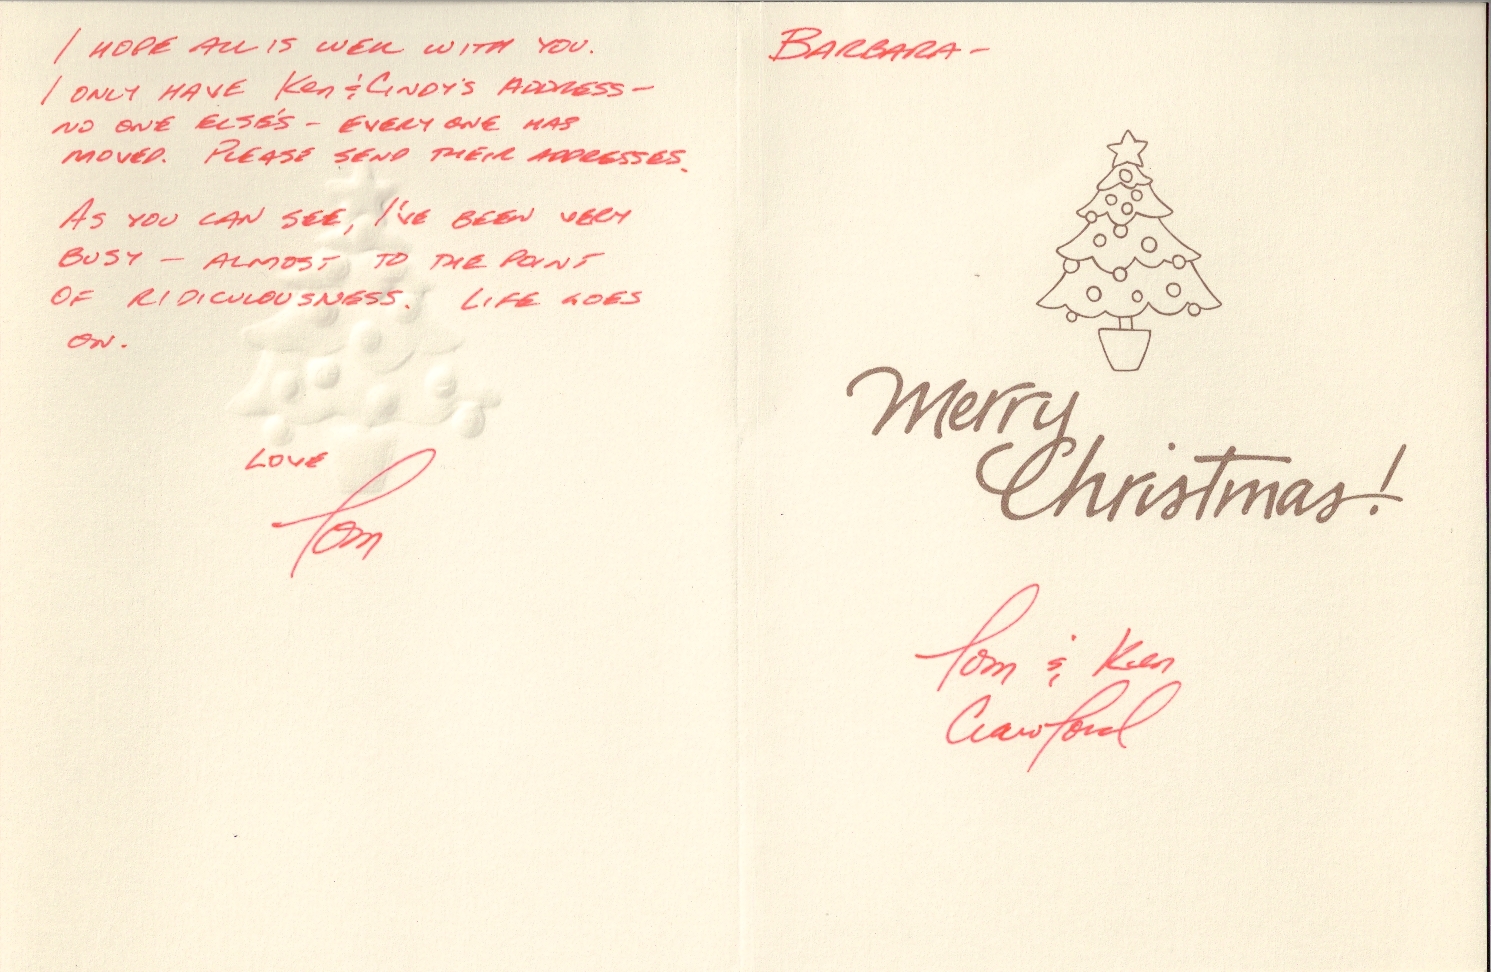 I HOPE ALL IS WELL WITH YOU.
I ONLY HAVE Ken & CINDY'S ADDRESS -
NO ONE ELSE'S - EVERYONE HAS
MOVED. PLEASE SEND THEIR ADDRESSES.
AS YOU CAN SEE, I'VE BEEN VERY
BUSY - ALMOST TO THE POINT
OF RIDICULOUSNESS. LIFE GOES
ON.
LOVE
Tom
BARBARA -
Merry
Christmas!
Tom & Ken
Crawford